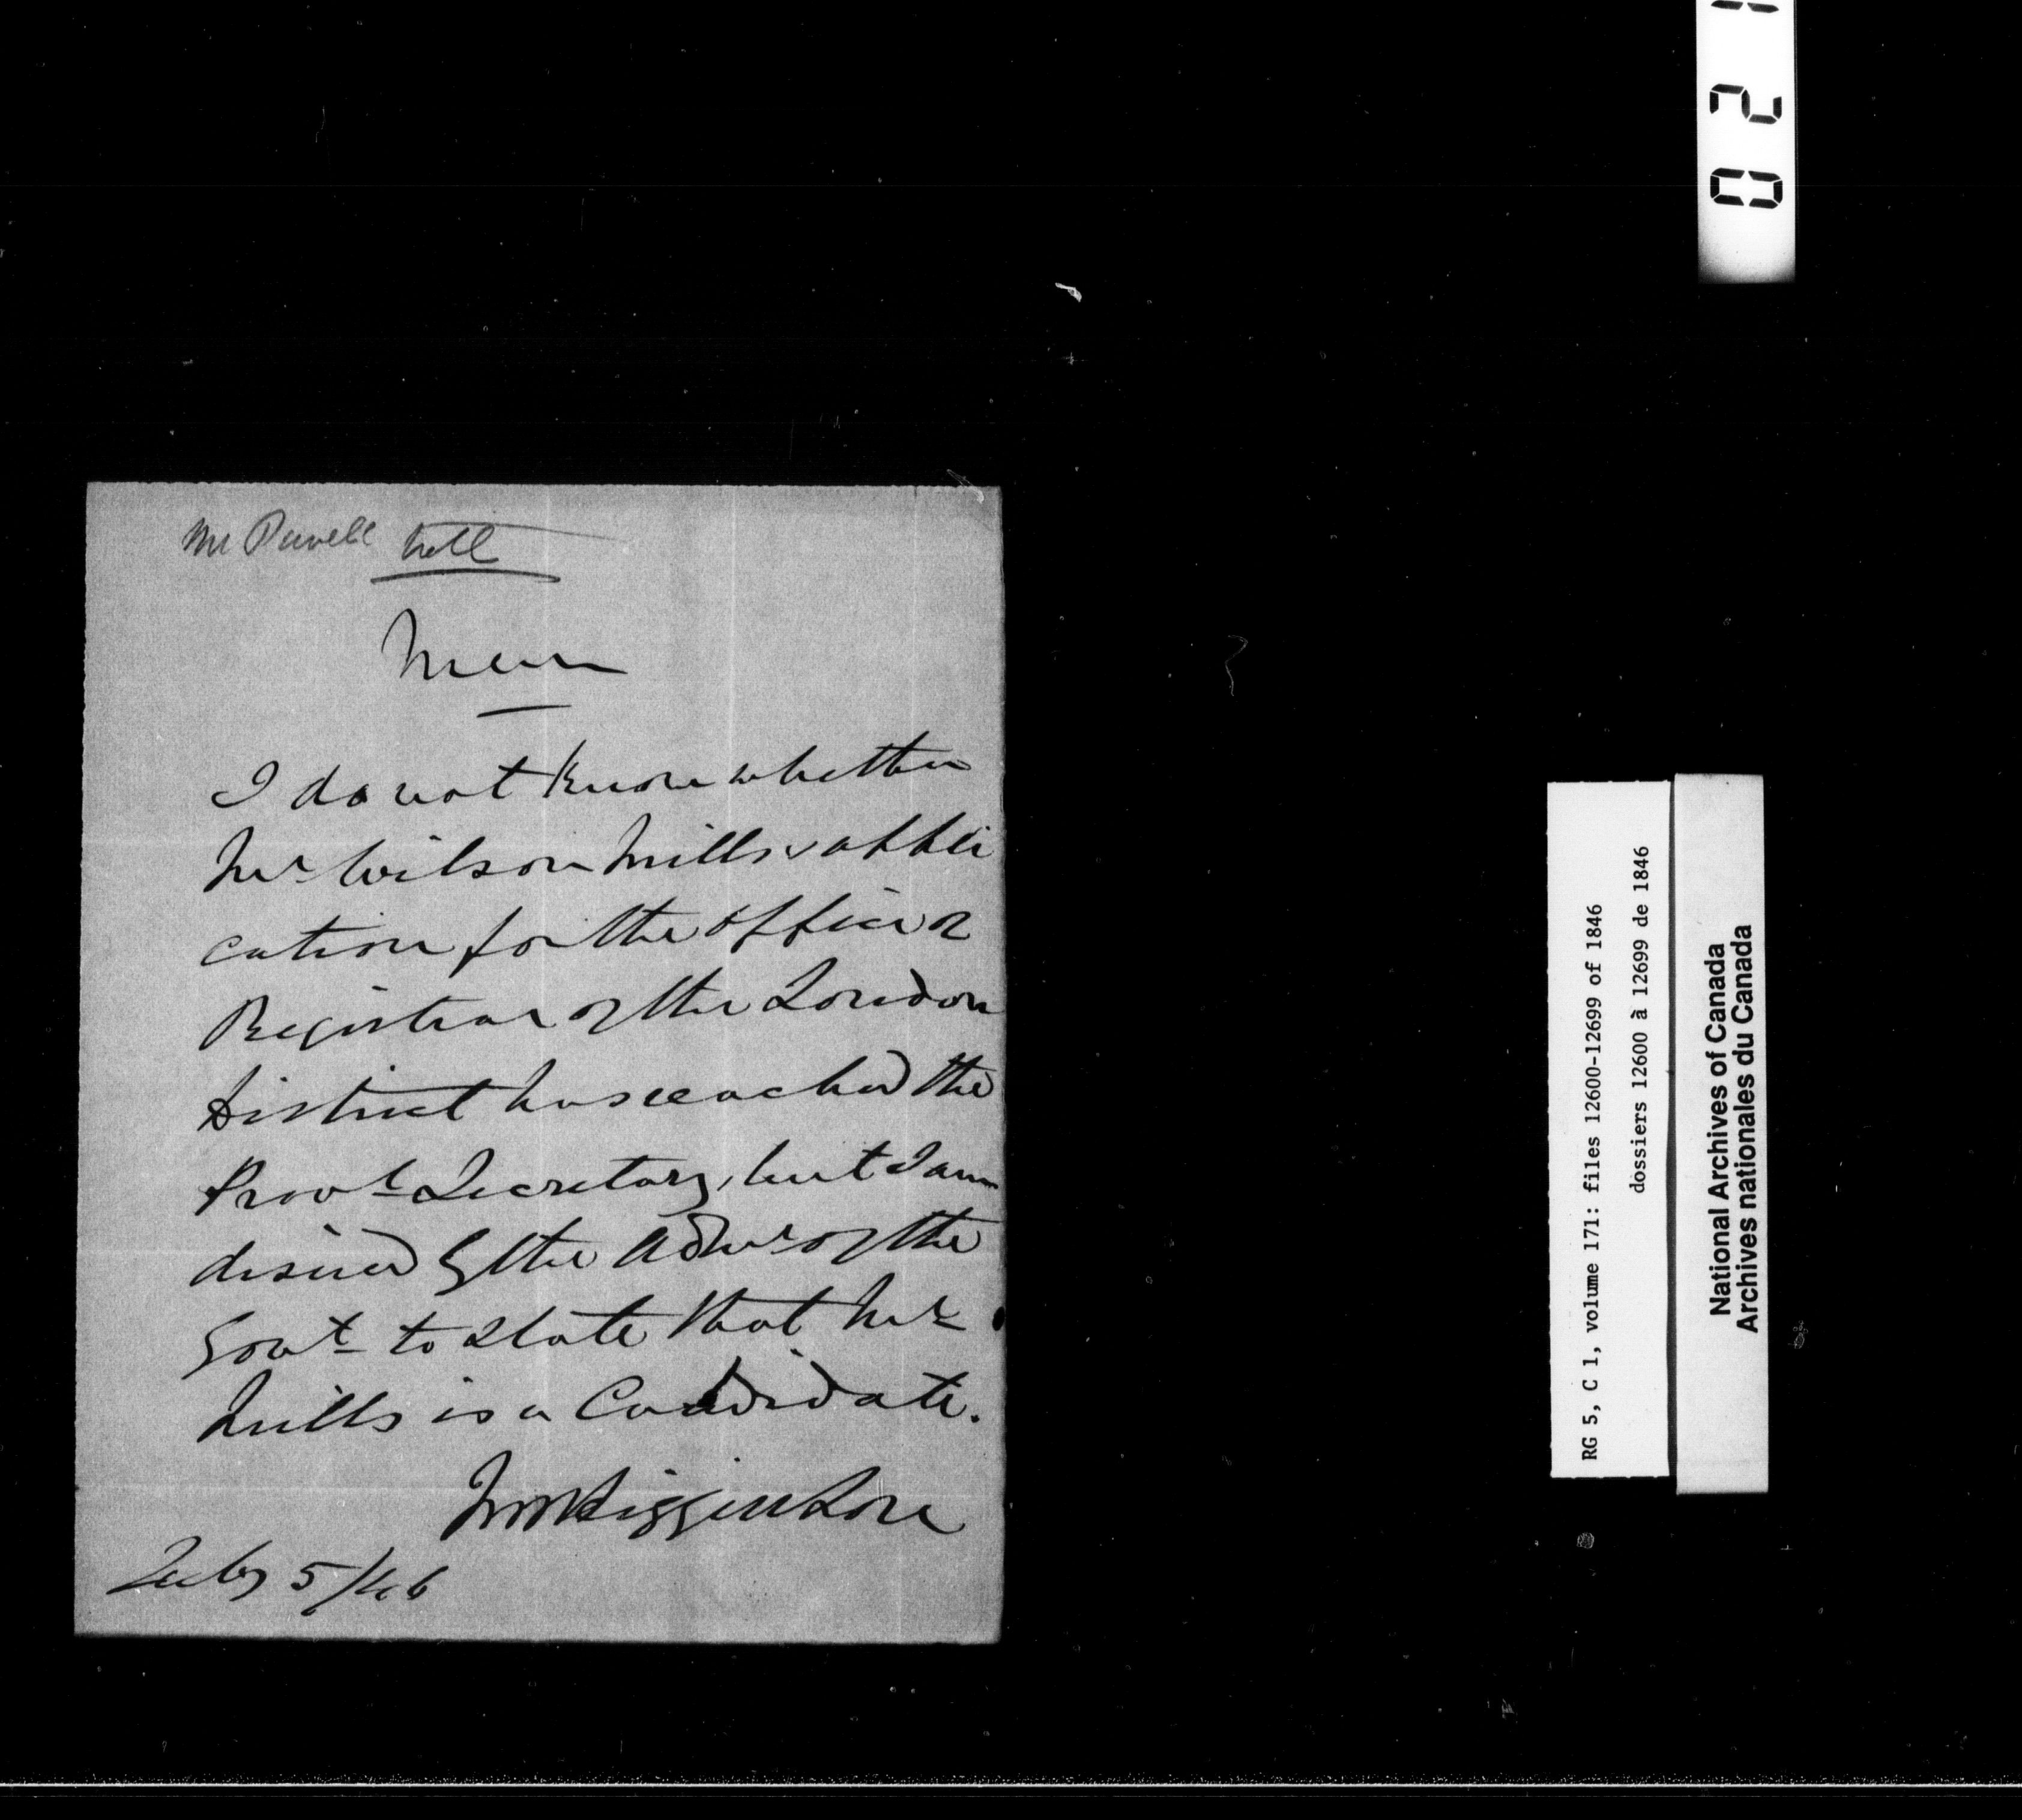 Mr Powell
Mem
I do not know whether
Mr Wilson Mills' appli
cation for the office of
Registrar of the London
District has reached the
Provl Secretary, but I am
desired by the Admr of the
Govt to state that Mr
Mills is a Candidate.
JM Higginson
July 5/46
021
RG 5, C 1, volume 171: files 12600-12699 of 1846
dossiers 12600 à 12699 de 1846
National Archives of Canada
Archives nationales du Canada